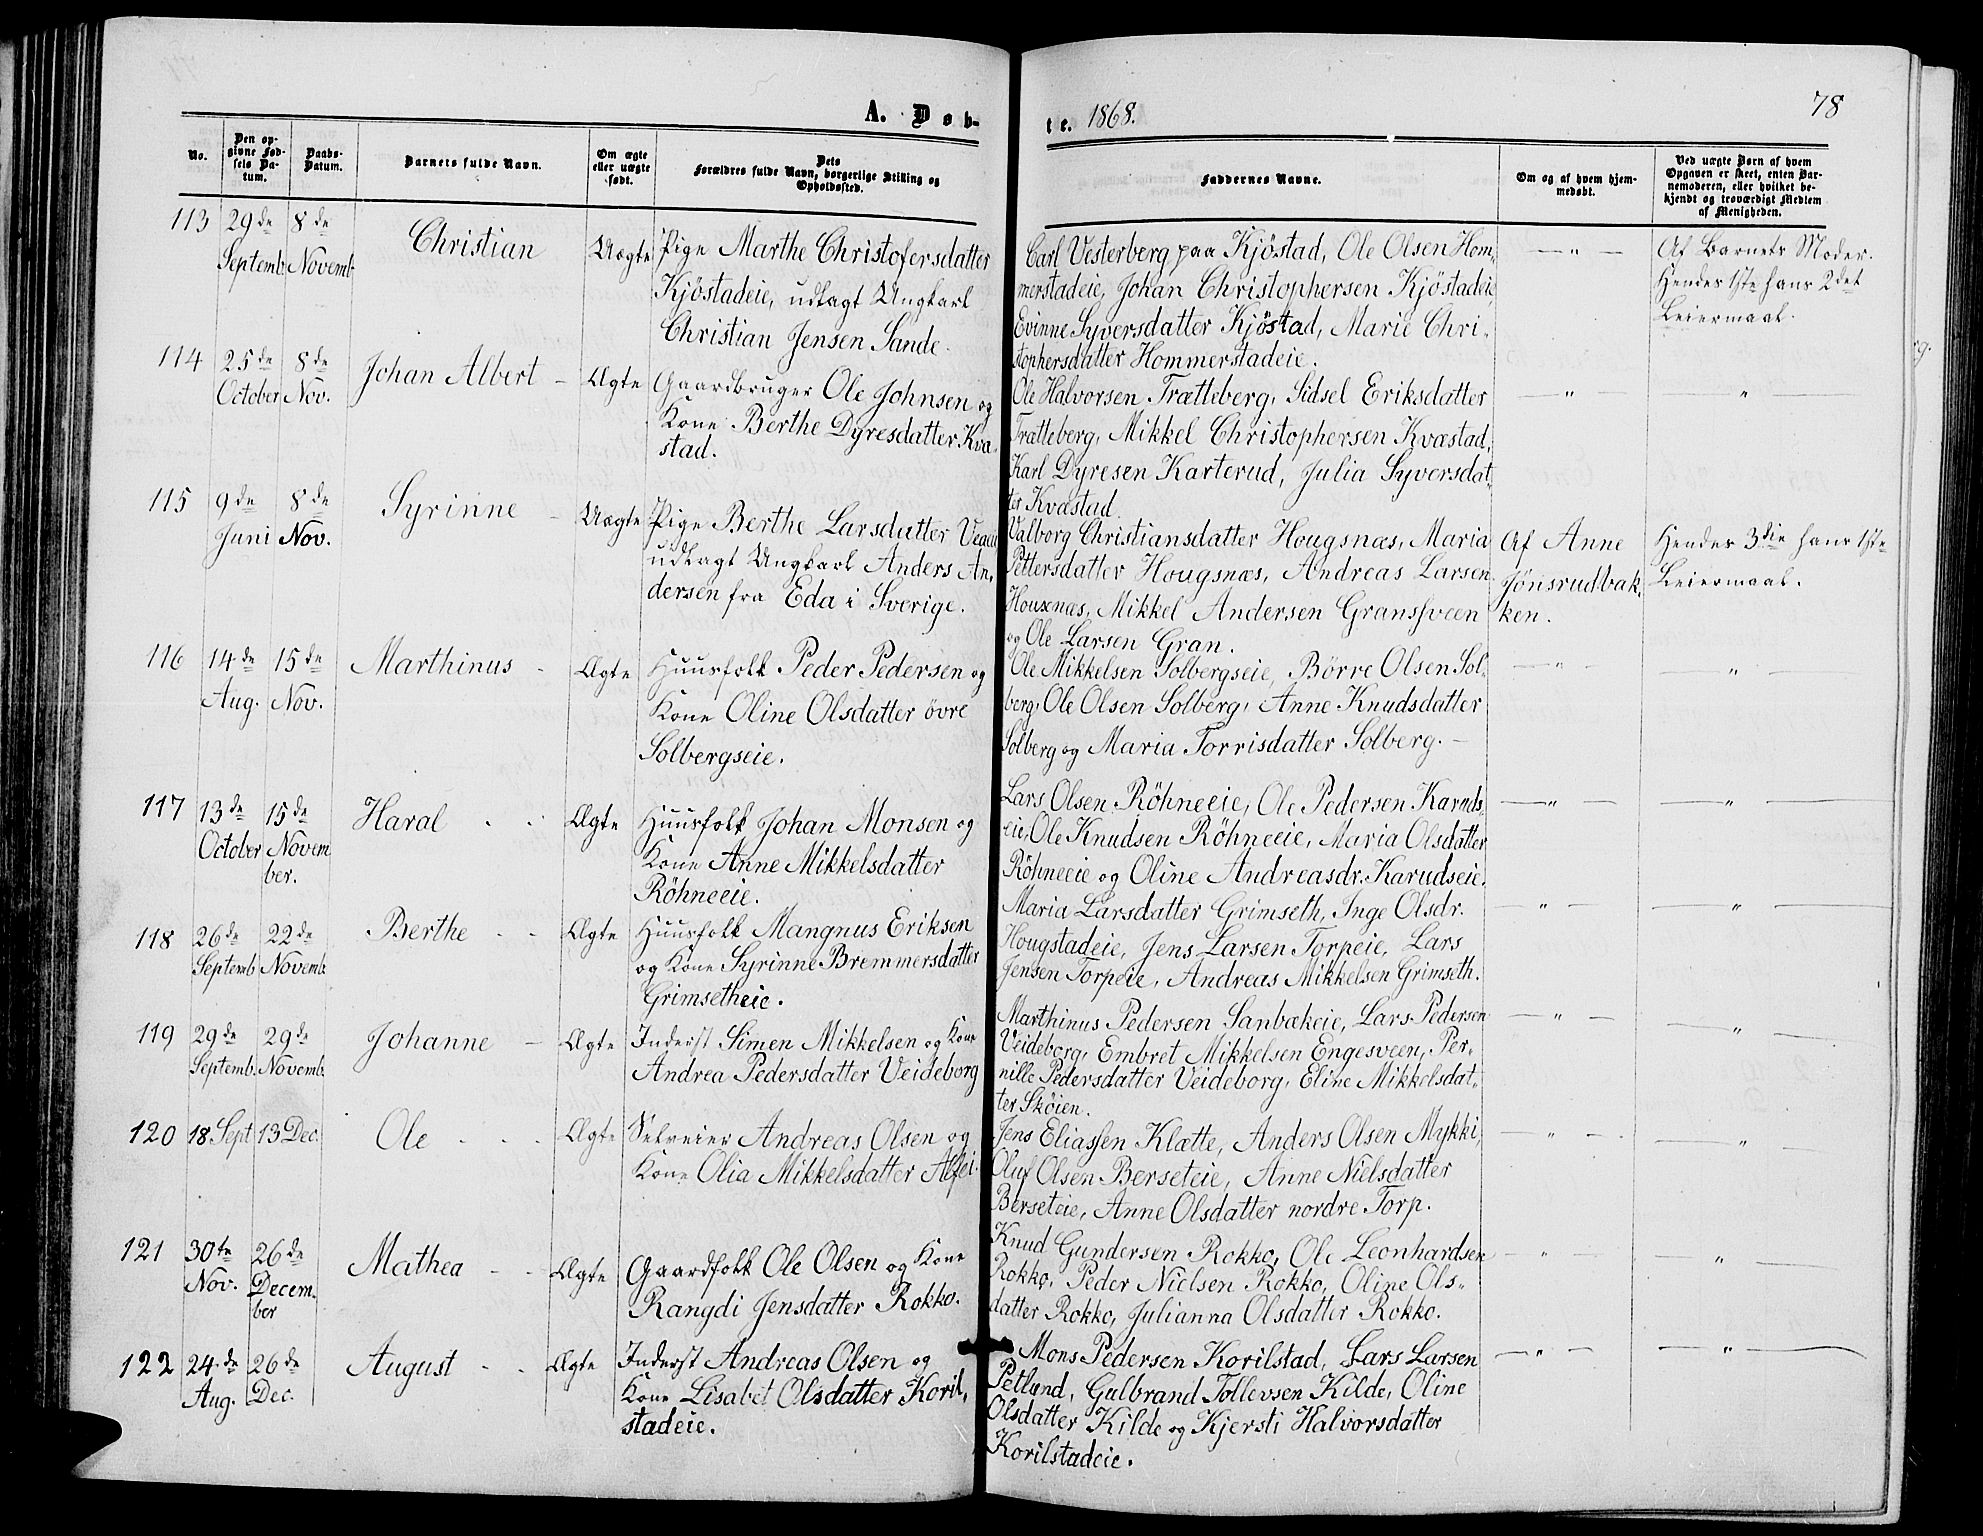 A. Døb-
te. 1868.
78
No.
Den op-
givne Fød-
sels Da-
tum.
Daabs-
Datum.
Barnets fulde Navn.
Om ægte
eller uægte
født.
Dets
Forældres fulde Navn, borgerlige Stilling og
Opholdssted.
Faddernes Navne.
Om og af hvem hjem-
medøbt.
Ved uægte Børn af hvem
Opgaven er skeet, enten Bar-
nemoderen, eller hvilket be-
kjendt og troværdigt Medlem
af Menigheden.
113 29de 8de
Septemb. Novemb.
Christian
Uægte
Pige Marthe Christofersdatter
Kjöstadeie, udlagt Ungkarl
Christian Jensen Sande.
Carl Vesterberg paa Kjöstad, Ole Olsen Hom-
merstadeie, Johan Christophersen Kjöstadeie
Evinne Syversdatter Kjöstad, Marie Chri-
stophersdatter Hommerstadeie.
— " —
Af Barnets Moder.
Hendes 1ste hans 2det
Leiermaal.
114 25de 8de
October Nov.
Johan Albert –
Ægte
Gaardbruger Ole Johnsen og
Kone Berthe Dyresdatter Kvæ-
stad.
Ole Halvorsen Trætteberg, Sidsel Eriksdatter
Trætteberg, Mikkel Christophersen Kvæstad,
Karl Dyresen Karterud, Julia Syversdat-
ter Kvæstad.
— " —
"
115 9de 8de
Juni Nov.
Syrinne –
Uægte
Pige Berthe Larsdatter
udlagt Ungkarl Anders An-
dersen fra Eda i Sverige.
Valborg Christiansdatter Hougsnæs, Maria
Pettersdatter Hougsnæs, Andreas Larsen
Houxnæs, Mikkel Andersen Gransſveen
og Ole Larsen Gran.
Af Anne
Jönsrudbak-
ken.
Hendes 3die hans 1ste
Leiermaal.
116 14de 15de
Aug. Nov.
Marthinus -
Ægte
Huusfolk Peder Pedersen og
Kone Oline Olsdatter övre
Solbergseie.
Ole Mikkelsen Solbergseie, Börre Olsen Sol-
berg, Ole Olsen Solberg, Anne Knudsdatter
Solberg og Maria Torrisdatter Solberg. –
— " —
— " —
117 13de 15de
October Novem
ber.
Haral - -
Ægte
Huusfolk Johan Monsen og
Kone Anne Mikkelsdatter
Röhneeie.
Lars Olsen Röhneeie, Ole Pedersen Karuds-
eie, Ole Knudsen Röhneeie, Maria Olsdatter
Röhneeie og Oline Andreasdr. Karudseie.
— " —
— " —
118 26de 22de
Septemb. Novemb.
Berthe - -
Ægte
Huusfolk Mangnus Eriksen
og Kone Syrinne Bremmersdatter
Grimsetheie.
Maria Larsdatter Grimseth, Inge Olsdr.
Hougstadeie, Jens Larsen Torpeie, Lars
Jensen Torpeie, Andreas Mikkelsen Grimseth.
— " —
— " —
119 29de 29de
Septemb. Novemb.
Johanne –
Ægte
Inderst Simen Mikkelsen og Kone
Andrea Pedersdatter Veideborg
Marthinus Pedersen Sanbækeie, Lars Pedersen
Veideborg, Embret Mikkelsen Engesveen, Per-
nille Pedersdatter Veideborg, Eline Mikkelsdat-
ter Sköien.
— " —
— " —
120 18 Sept. 13 Dec.
Ole - - -
Ægte
Selveier Andreas Olsen og
Kone Olia Mikkelsdatter
Jens Eliasſen Klætte, Anders Olsen Mykki,
Oluf Olsen Berseteie, Anne Nielsdatter
Berseteie, Anne Olsdatter nordre Torp.
— " —
— " —
121 30te 26de
Nov. Decem-
ber
Mathea - -
Ægte
Gaardfolk Ole Olsen og Kone
Rangdi Jensdatter Rokko.
Knud Gundersen Rokko, Ole Leonhardsen
Rokko, Peder Nielsen Rokko, Oline Ols-
datter Rokko, Julianna Olsdatter Rokko.
— " —
— " —
122 24de 26de
Aug. Dec.
August - -
Ægte
Inderst Andreas Olsen og
Kone Lisabet Olsdatter Koril-
stadeie.
Mons Pedersen Korilstad, Lars Larsen
Petlund, Gulbrand Tollevsen Kilde, Oline
Olsdatter Kilde og Kjersti Halvorsdatter
Korilstadeie.
— " —
— " —